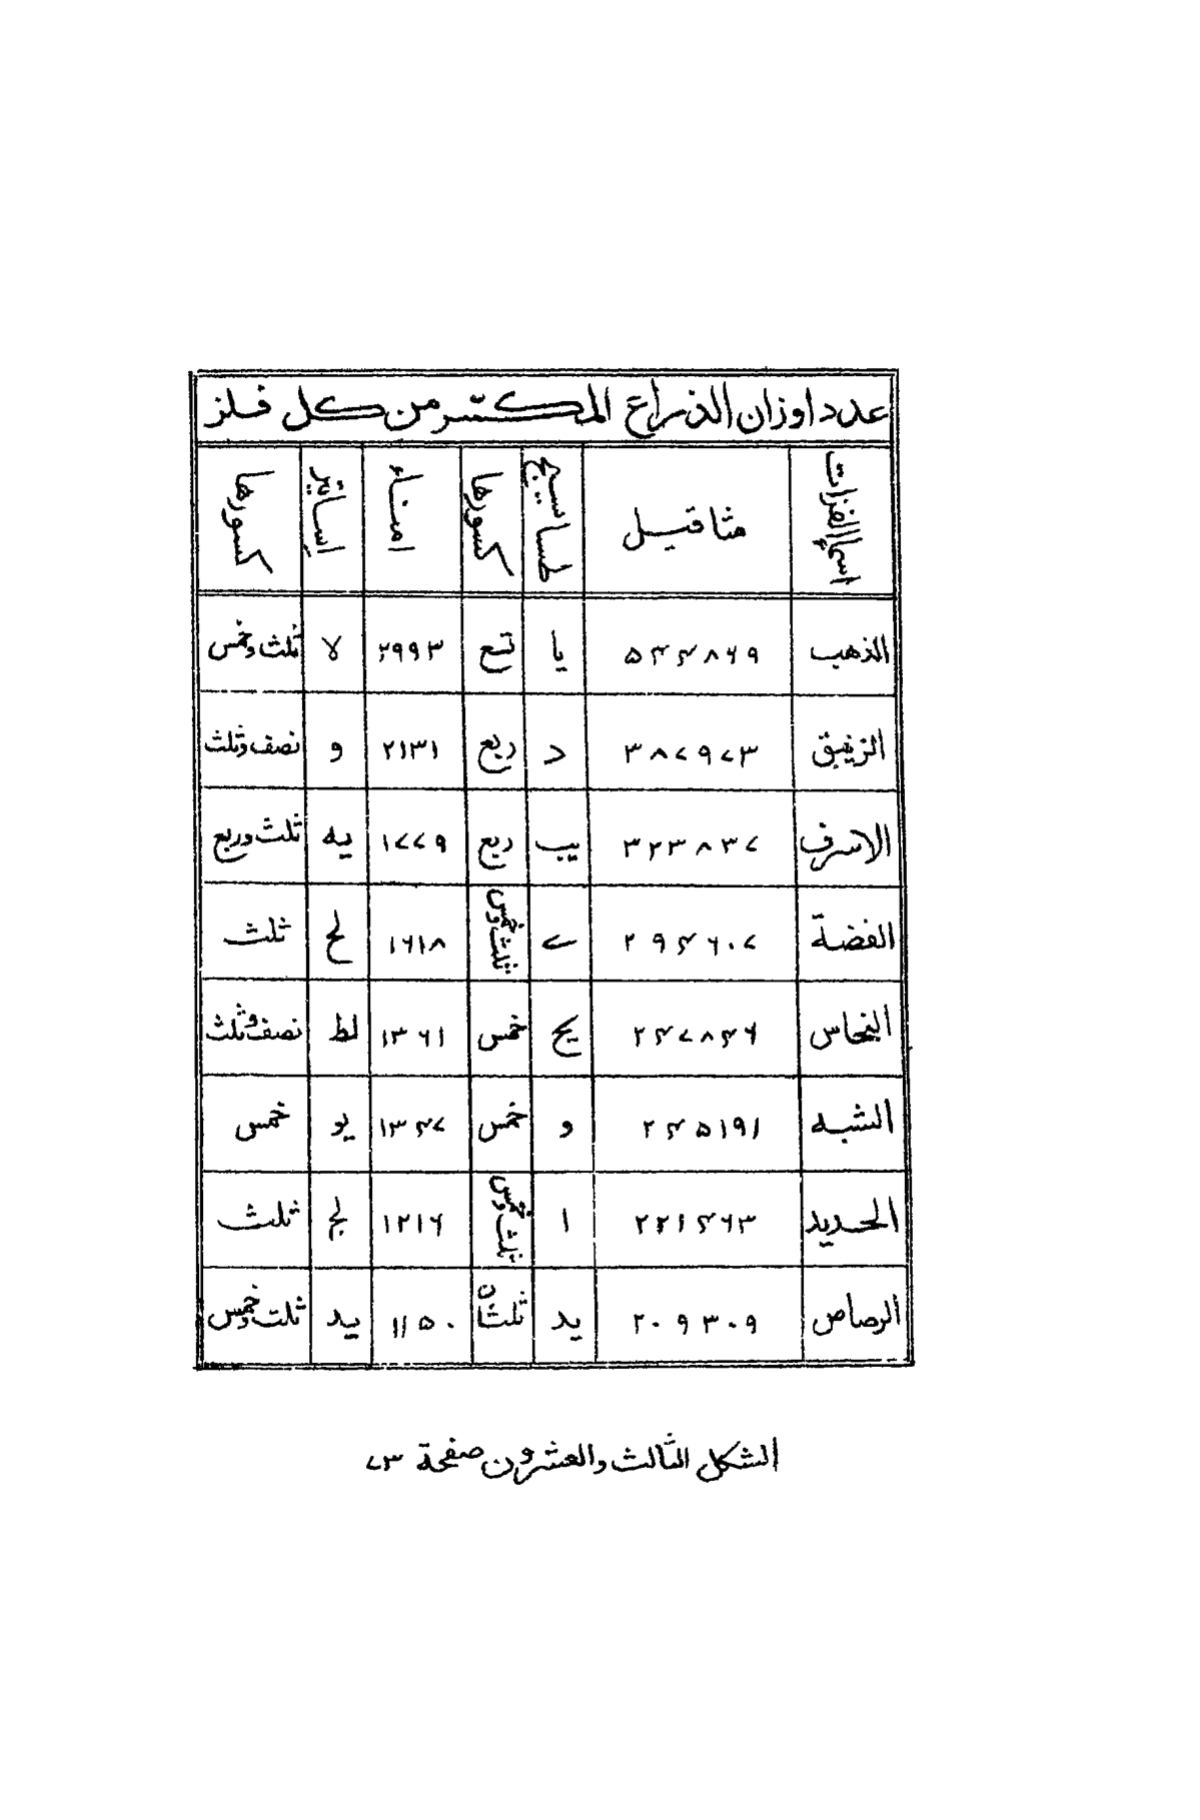 عدد اوزان الذراع المكسر من كل فلز
اسماء الفلزات | مثاقيل | طساسيج | كسورها | امناء | اساتير | كسورها
الذهب | ٥٤٤٨٦٩ | يا | تسع | ٢٩٩٣ | لا | ثلث وخمس
الزئبق | ٣٨٧٩٧٣ | د | ربع | ٢١٣١ | و | نصف وثلث
الاسرف | ٣٢٣٨٣٧ | يب | ربع | ١٧٧٩ | يه | ثلث وربع
الفضة | ٢٩٤٦٠٧ | ى | ثلث وخمس | ١٦١٨ | لح | ثلث
النحاس | ٢٤٧٨٤٦ | يح | خمس | ١٣٦١ | لط | نصف وثلث
الشبه | ٢٤٥١٩١ | و | خمس | ١٣٤٧ | يو | خمس
الحديد | ٢٢١٤٦٣ | ا | ثلث وخمس | ١٢١٦ | لج | ثلث
الرصاص | ٢٠٩٣٠٩ | يد | ثلثان | ١١٥٠ | يد | ثلث وخمس
الشكل الثالث والعشرون صفحة ٧٣